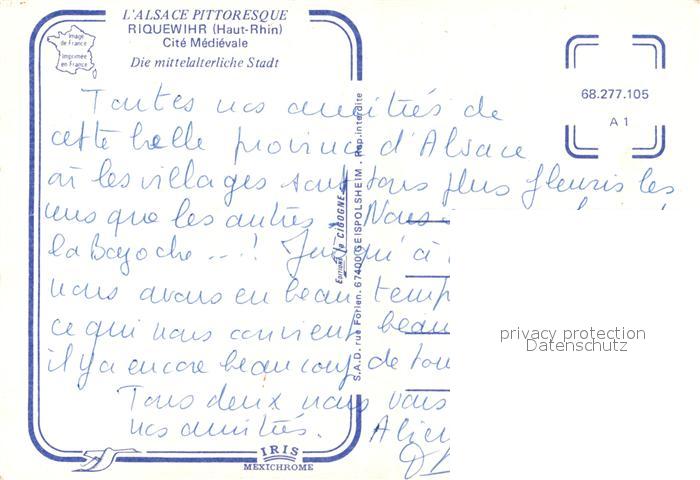 L'ALSACE PITTORESQUE
RIQUEWIHR (Haut-Rhin)
Cité Médiévale
Die mittelalterliche Stadt
Image
de France
Imprimée
en France
68.277.105
A 1
Toutes nos amitiés de
cette belle province d'Alsace
où les villages sont tous plus fleuris les
uns que les autres. Nous
la Bazoche ...! Jusqu'à
nous avons eu beau temp
ce qui nous convient beau
il y a encore beaucoup de tou
Tous deux nous vous
nos amitiés.
Editions la CIGOGNE
S.A.D. rue Forlen. 67400 GEISPOLSHEIM . Rep. interdite
privacy protection
Datenschutz
IRIS
MEXICHROME